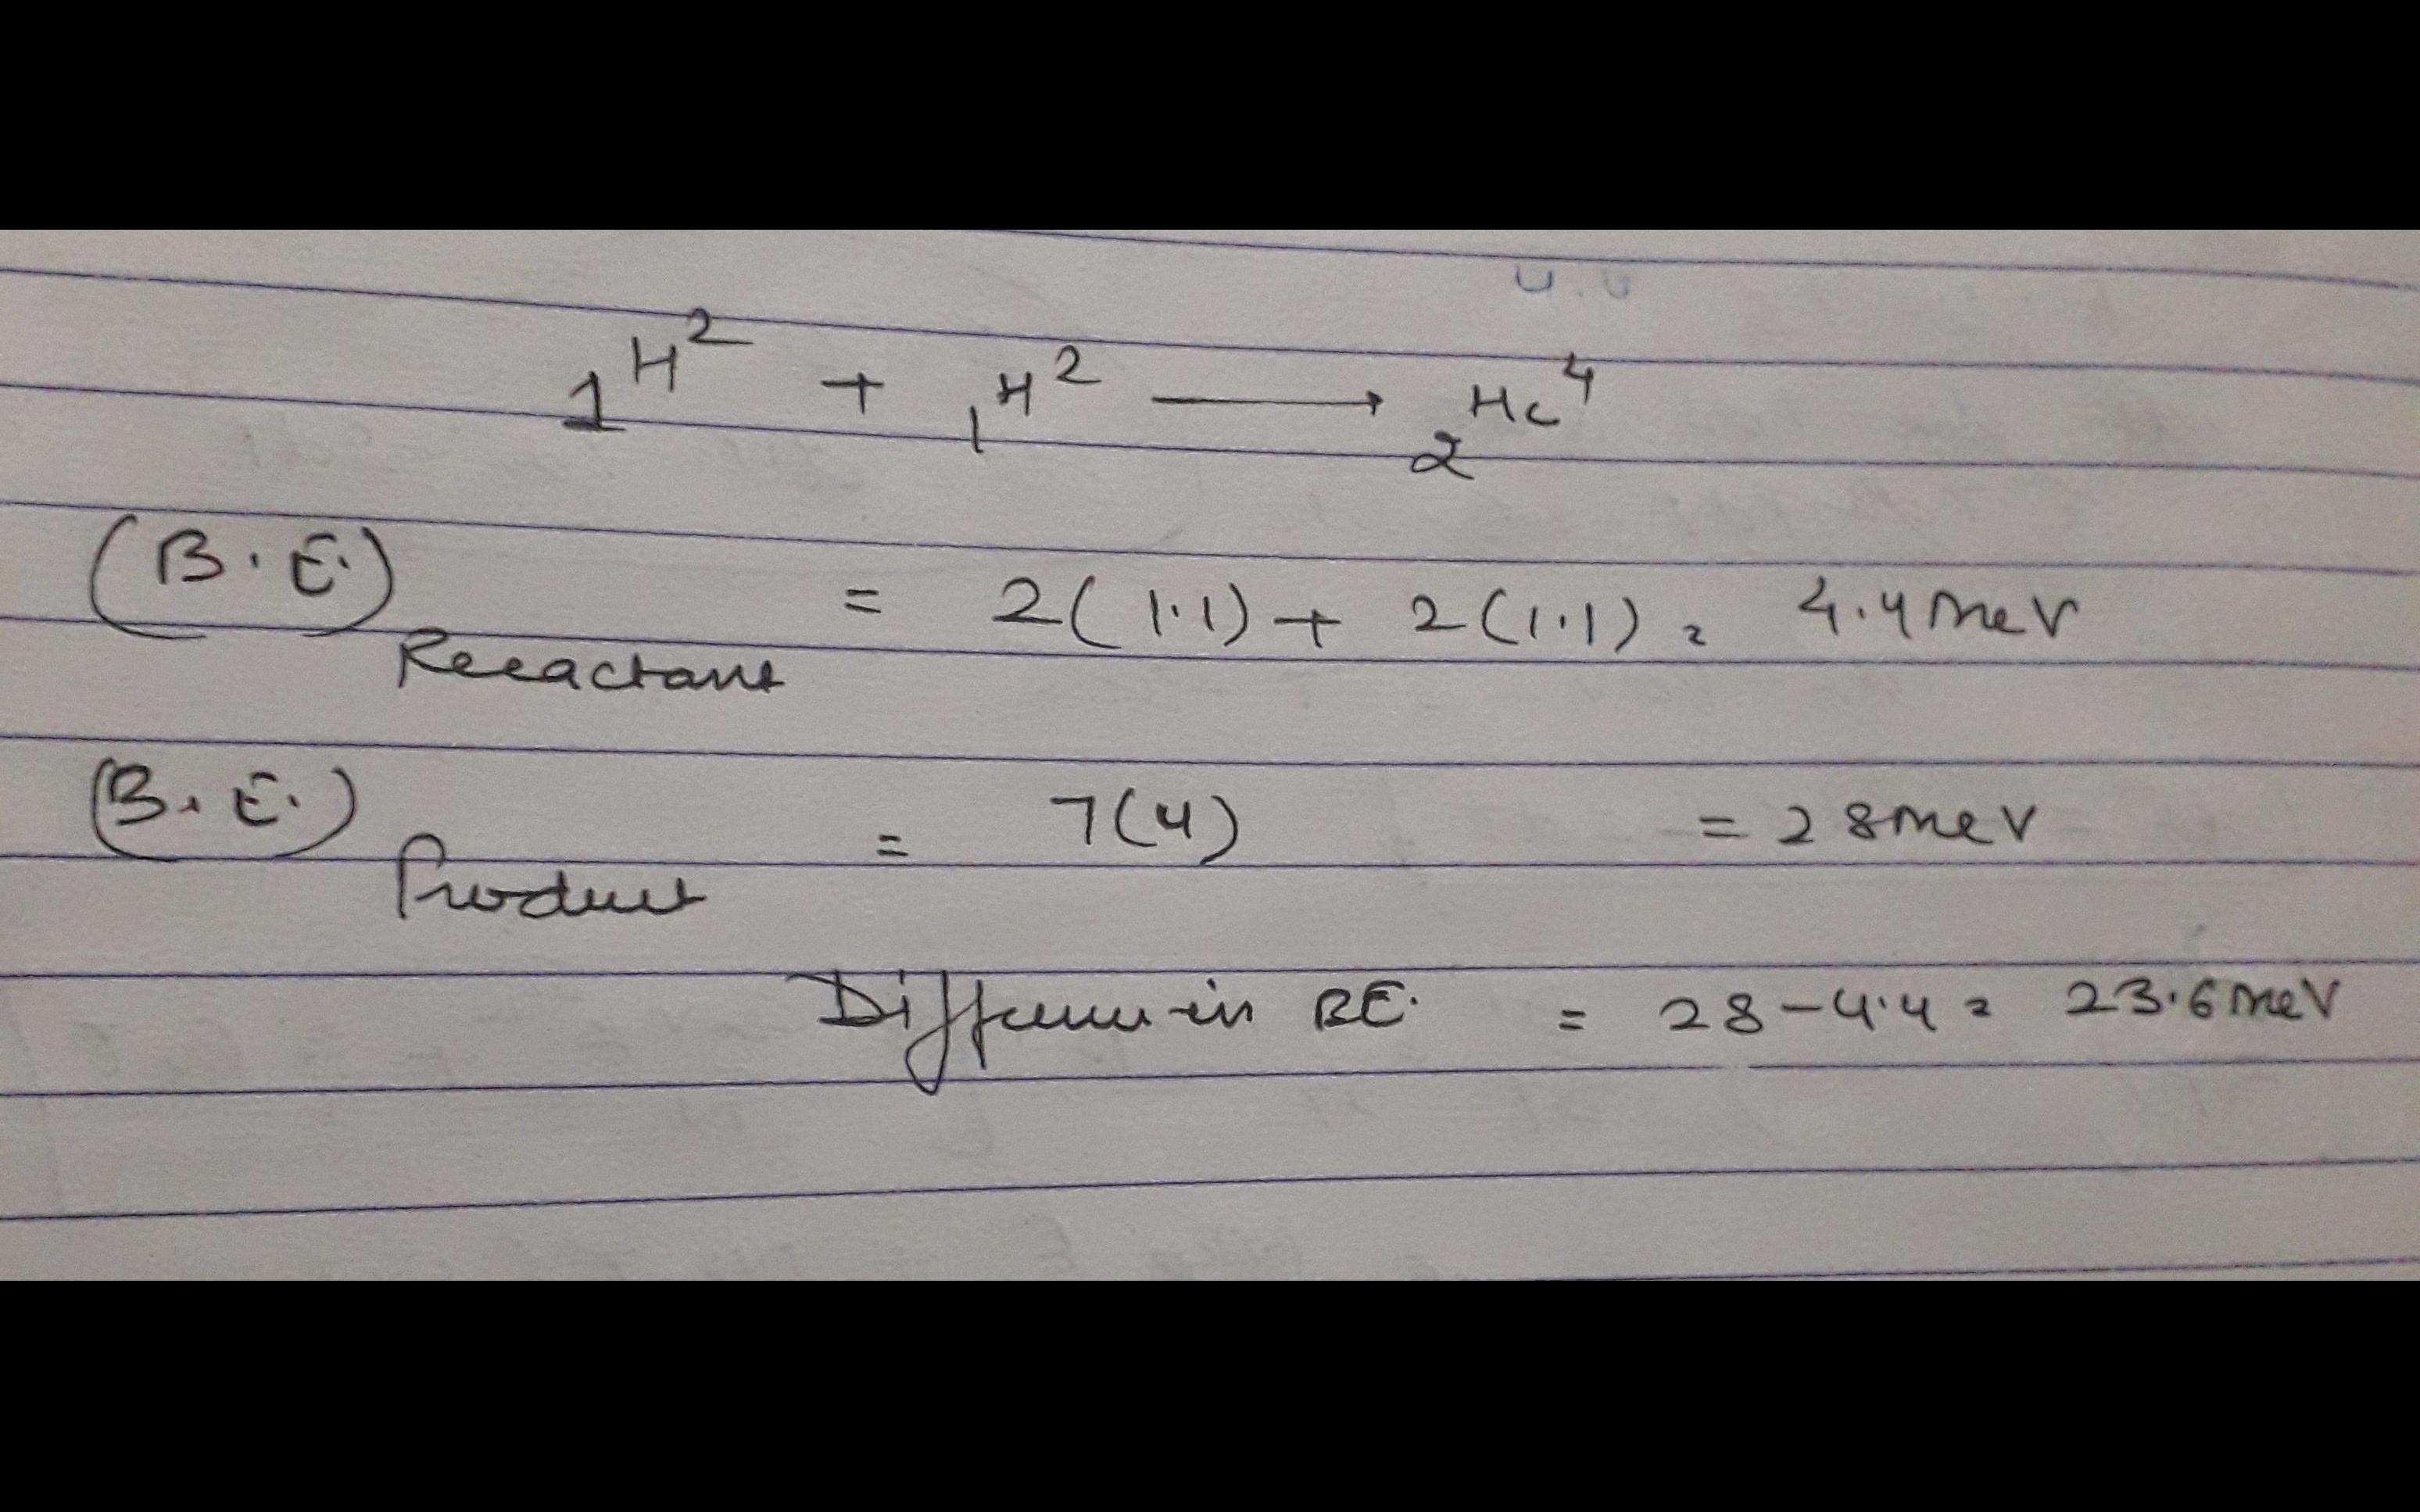 ₁H² + ₁H² ⟶ ₂He⁴
(B.E.) Reeactant = 2(1.1) + 2(1.1) = 4.4 meV
(B.E.) Product = 7(4) = 28 meV
Difference in BE. = 28 - 4.4 = 23.6 meV